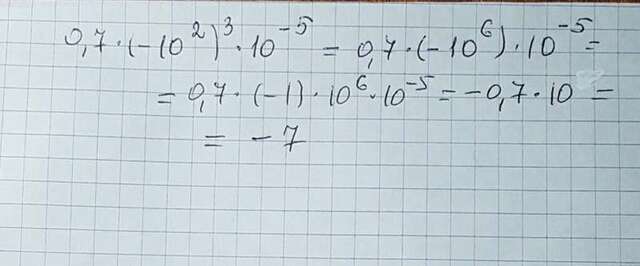 0,7·(-10²)³·10⁻⁵ = 0,7·(-10⁶)·10⁻⁵=
= 0,7·(-1)·10⁶·10⁻⁵ = -0,7·10 =
= -7